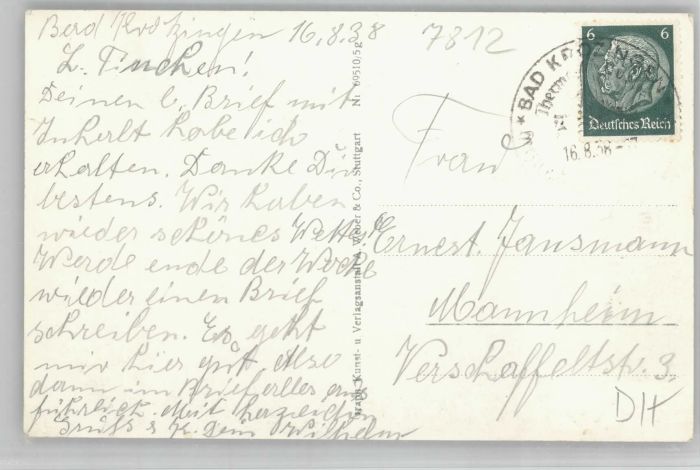 Bad Krotzingen 16.8.38
L. Tinchen!
Deinen l. Brief mit
Inhalt habe ich
erhalten. Danke Dir
bestens. Wir haben
wieder schönes Wetter.
Werde ende der Woche
wieder einen Brief
schreiben. Es geht
mir hier gut Also
dann im Brief alles aus
führlich. Mit herzlichen
Gruss & K. Dein Wilhelm
Graph. Kunst- u. Verlagsanstalt A. Weber & Co., Stuttgart Nr. 69510/5g
7812
6 6
Deutsches Reich
* BAD KROZINGEN
16.8.38
Frau
Ernest. Jansmann
Mannheim
Verschaffeltstr. 3.
DH